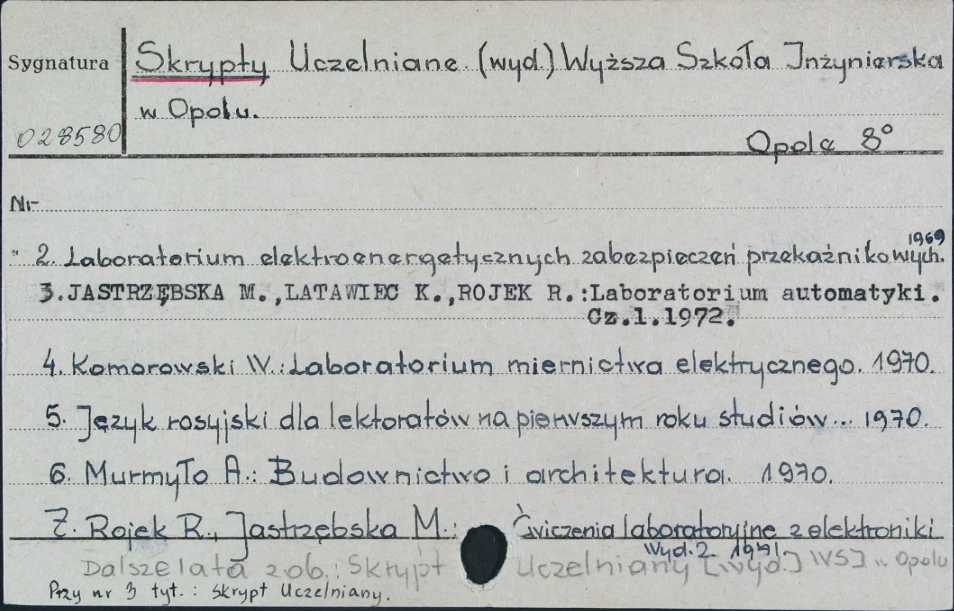 Sygnatura Skrypty Uczelniane (wyd.) Wyższa Szkoła Inżynierska
w Opolu.
028580
Opole 8°
Nr
" 2. Laboratorium elektroenergetycznych zabezpieczeń przekaźnikowych. 1969
3. JASTRZĘBSKA M., LATAWIEC K., ROJEK R.: Laboratorium automatyki.
Cz.1.1972.
4. Komorowski W.: Laboratorium miernictwa elektrycznego. 1970.
5. Język rosyjski dla lektoratów na pierwszym roku studiów... 1970.
6. Murmyło A.: Budownictwo i architektura. 1970.
7. Rojek R., Jastrzębska M.: Ćwiczenia laboratoryjne z elektroniki
Wyd. 2. 1971.
Dalsze lata zob.: Skrypt Uczelniany [wyd.] WSI w Opolu
Przy nr 3 tyt.: Skrypt Uczelniany.